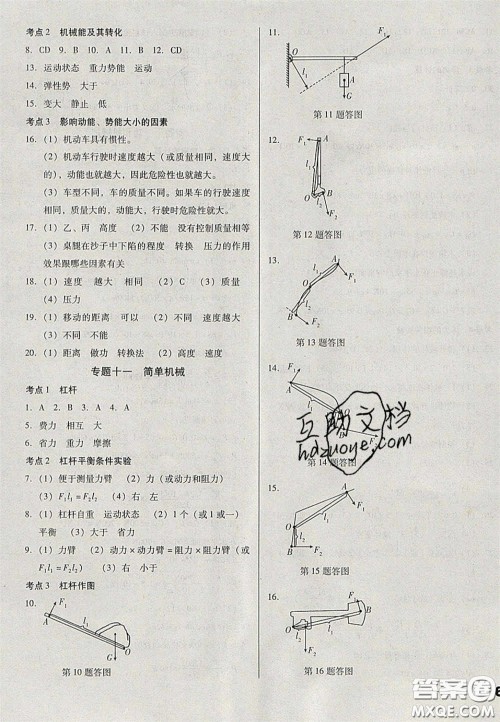 考点2　机械能及其转化
8. CD　9. B　10. A　11. B　12. CD
13. 运动状态　重力势能　运动
14. 弹性势　大于
15. 变大　静止　低
考点3　影响动能、势能大小的因素
16. (1) 机动车具有惯性。
(2) 机动车行驶时速度越大（或质量相同，速度越大）的，动能也就越大，因此危险性也就越大。
(3) 车型不同，车的质量不同。如果机动车行驶的速度相同，质量大的，动能大，行驶时危险性就大。
17. (1) 乙、丙　高度　(2) 不能　没有控制质量相等
(3) 桌腿在沙子中下陷的程度　转换　压力的作用效果跟哪些因素有关
18. (1) 速度　越大　相同　(2) C　(3) 质量
(4) 压力
19. (1) 移动的距离　可以　(2) 不相同　越大
(3) 不同　不能
20. (1) 距离　做功　转换法　(2) 高度
专题十一　简单机械
考点1　杠杆
1. A　2. B　3. B　4. A
5. 费力　相互　大
6. 省力　重力　摩擦
考点2　杠杆平衡条件实验
7. (1) 便于测量力臂　(2) 力（或动力和阻力）
(3) F₁l₁=F₂l₂　(4) 右　左
8. (1) 杠杆自重　运动状态　(2) 1个（或1）
平衡　(3) 大于　省力
9. (1) 力臂　(2) 动力×动力臂=阻力×阻力臂（或
F₁l₁=F₂l₂）　(3) 右　小于
考点3　杠杆作图
10.
F₁
A
l₁
O
G
第10题答图
11.
F₁
O
l₁
A
G
第11题答图
12.
F₁
A
O
l₂
B
F₂
第12题答图
13.
l₁
A
F₁
O
l₂
B
F₂
第13题答图
14.
A
F₁
第14题答图
互助文档
hdzuoye.com
15.
A
l₁
F₁
O
B
F₂
第15题答图
16.
F₁
B
l₂
O
F₂
第16题答图
答案圈
MXQE.COM